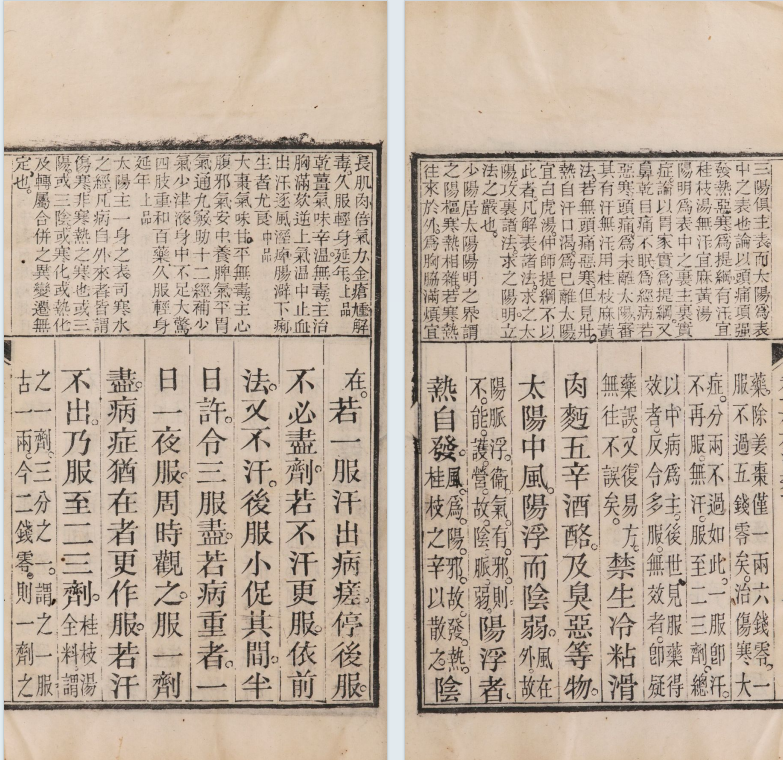 長肌肉倍氣力金瘡尰解
毒久服輕身延年上品
乾薑氣味辛溫無毒主治
胸滿欬逆上氣溫中止血
出汗逐風溼痺腸澼下痢
生者尤良中品
大棗氣味甘平無毒主心
腹邪氣安中養脾氣平胃
氣通九竅助十二經補少
氣少津液身中不足大驚
四肢重和百藥久服輕身
延年上品
太陽主一身之表司寒水
之經凡病自外來者皆謂
傷寒非寒熱之寒也或三
陽或三陰或寒化或熱化
及轉屬合併之異變遷無
定也。
在。若一服汗出病瘥。停後服。
不必盡劑。若不汗更服。依前
法。又不汗。後服小促其間。半
日許。令三服盡。若病重者。一
日一夜服。周時觀之。服一劑
盡。病症猶在者。更作服。若汗
不出。乃服至二三劑。桂枝湯全料謂
之一劑。三分之一。謂之一服
古一兩。今二錢零。則一劑之
三陽俱主表而太陽爲表
中之表也論以頭痛項强
發熱惡寒爲提綱有汗宜
桂枝湯無汗宜麻黃湯
陽明爲表中之裏主裏實
症論以胃家實爲提綱又
鼻乾目痛不眠爲經病若
惡寒頭痛爲未離太陽審
其有汗無汗用桂枝麻黃
法若無頭痛惡寒但見壯
熱自汗口渴爲已離太陽
宜白虎湯仲師提綱不以
此者凡解表諸法求之太
陽攻裏諸法求之陽明立
法之嚴也。
少陽居太陽陽明之界謂
之陽樞寒熱相雜若寒熱
往來於外爲胸脇滿煩宜
藥。除姜棗僅一兩六錢零。一
服不過五錢零矣。治傷寒大
症。分兩不過如此。一服卽汗。
不再服。無汗。服至二三劑。總
以中病爲主。後世見服藥得
效者。反令多服。無效者。卽疑
藥誤。又復易方。無往不誤矣。禁生冷粘滑
肉麪五辛酒酪。及臭惡等物。
太陽中風。陽浮而陰弱。風在外故
陽脈浮。衞氣有邪。則不能護營。故陰脈弱。陽浮者
熱自發。風爲陽邪。故發熱。桂枝之辛以散之。陰